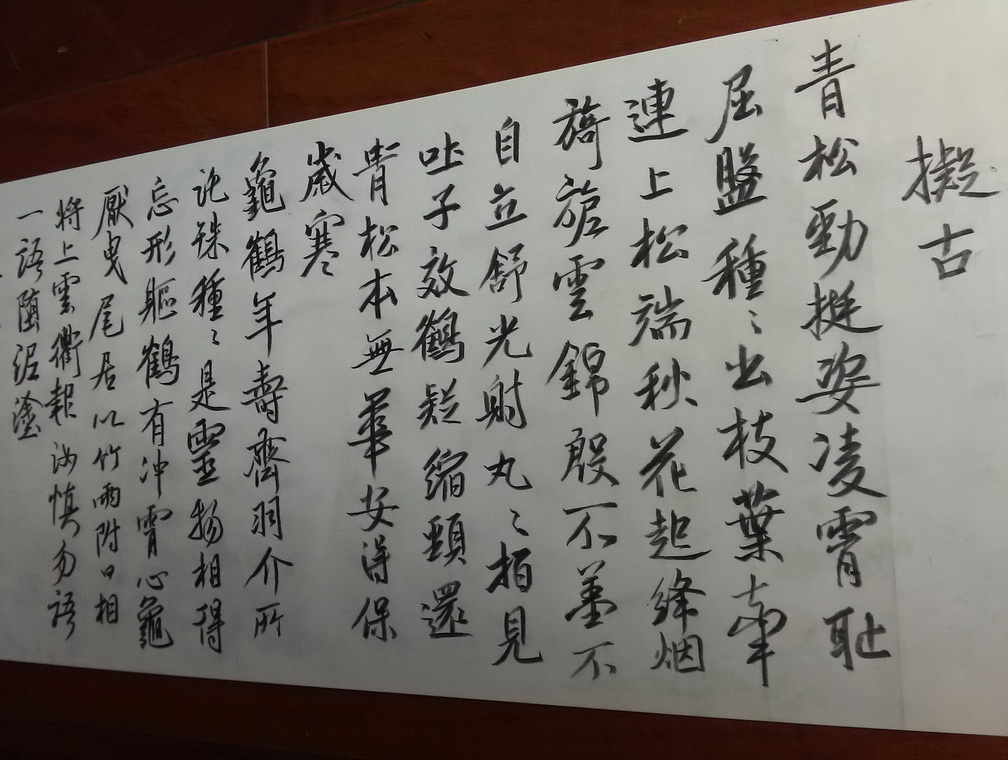 擬古
青松勁挺姿凌霄耻
屈盤種〻出枝葉牽
連上松端秋花起絳烟
旖旎雲錦殷不羞不
自立舒光射丸〻柏見
吐子效鶴疑縮頸還
青松本無華安得保
歲寒
龜鶴年壽齊羽介所
託殊種〻是靈物相得
忘形軀鶴有冲霄心龜
厭曳尾居以竹兩附口相
將上雲衢報汝慎勿語
一語墮泥塗